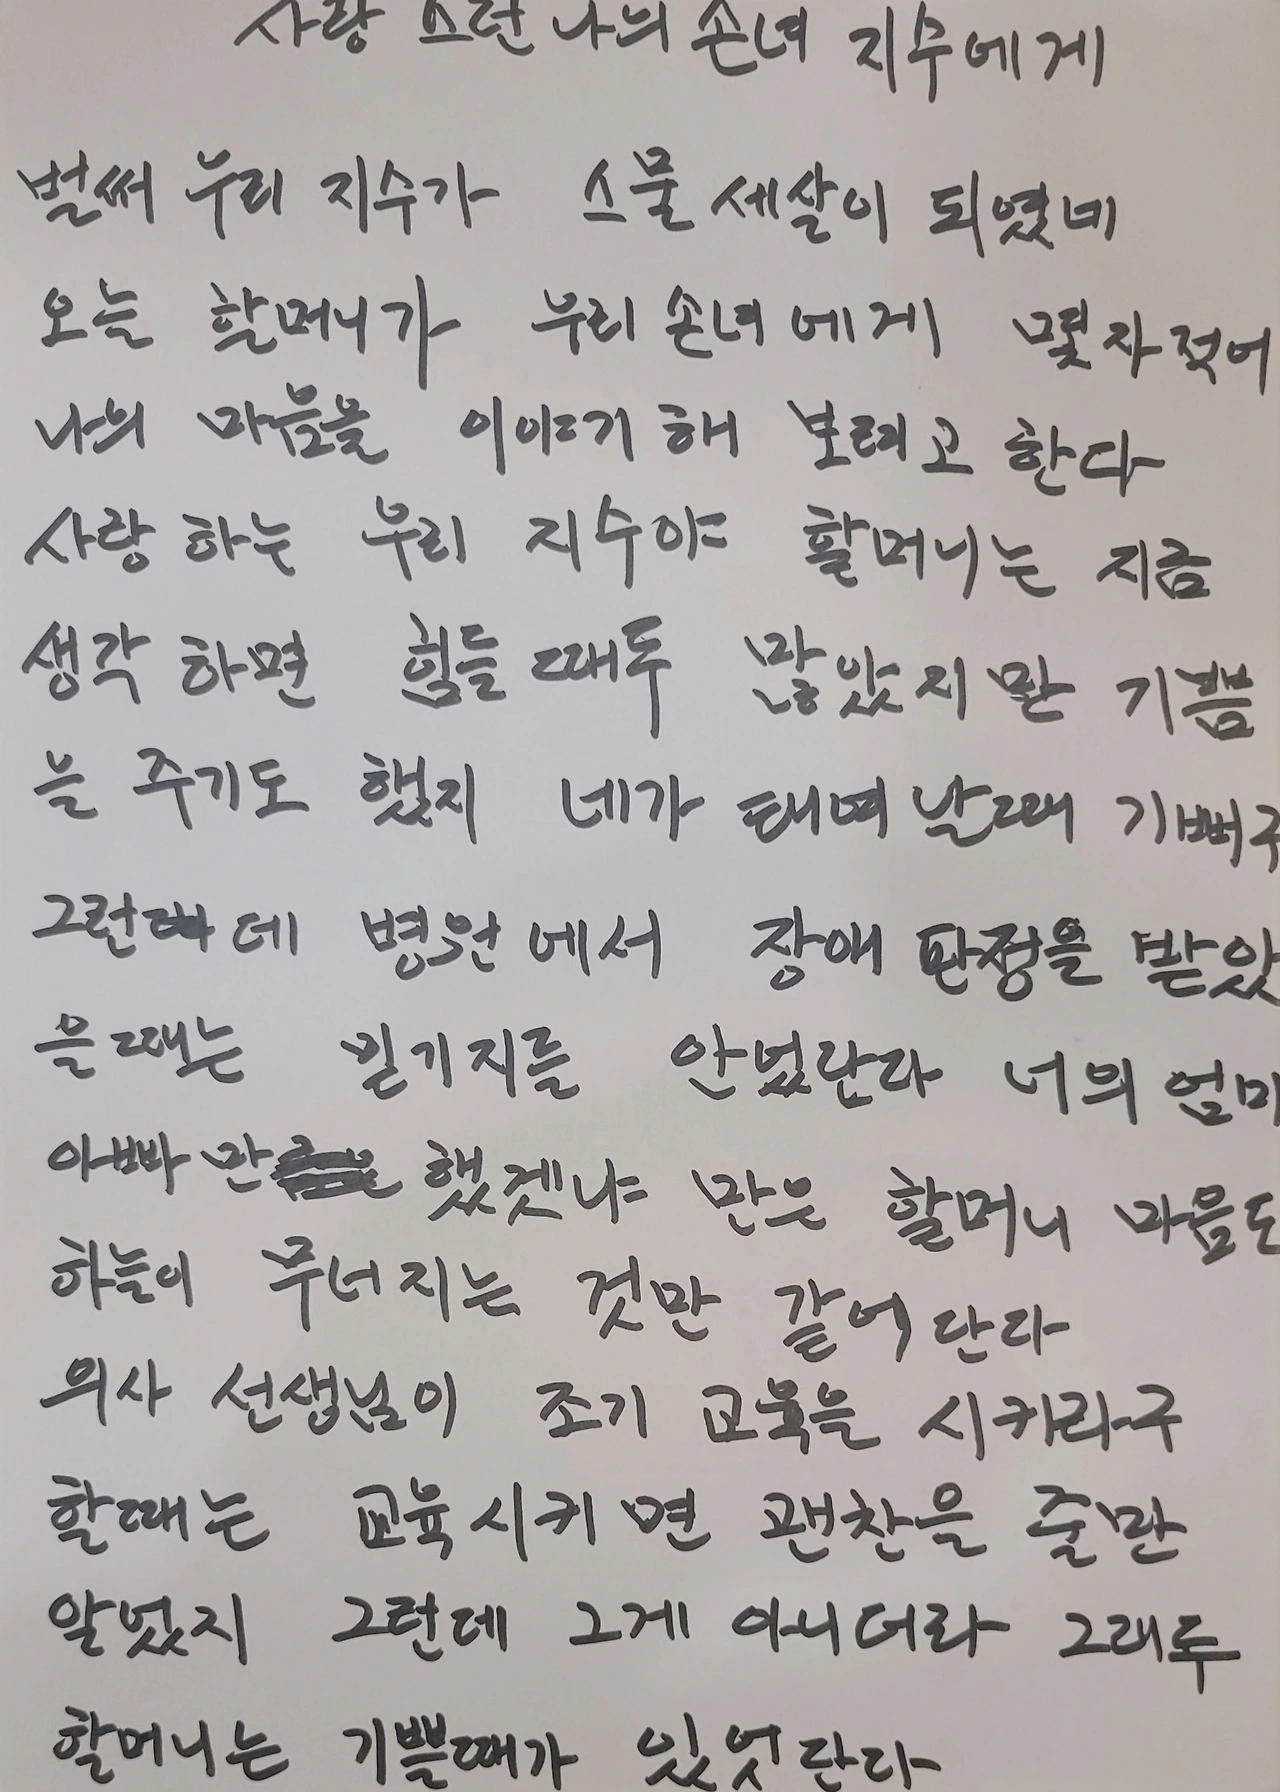 사랑 스런 나의 손녀 지수에게
벌써 우리 지수가 스물 세살이 되였네
오늘 할머니가 우리 손녀 에게 몇자 적어
나의 마음을 이야기 해 보려고 한다
사랑 하는 우리 지수야 할머니는 지금
생각 하면 힘들 때두 많았지만 기쁨
을 주기도 했지 네가 태여 날때 기뻐구
그런데 병원에서 장애 판정을 받았
을때는 믿기지를 안넜란다 너의 엄마
아빠 만 했겠냐 만은 할머니 마음도
하늘이 무너지는 것만 같어 단다
의사 선생님이 조기 교육을 시키라구
할때는 교육시키면 괜찬을 줄만
알넜지 그런데 그게 아니더라 그래두
할머니는 기쁠때가 있엇단다